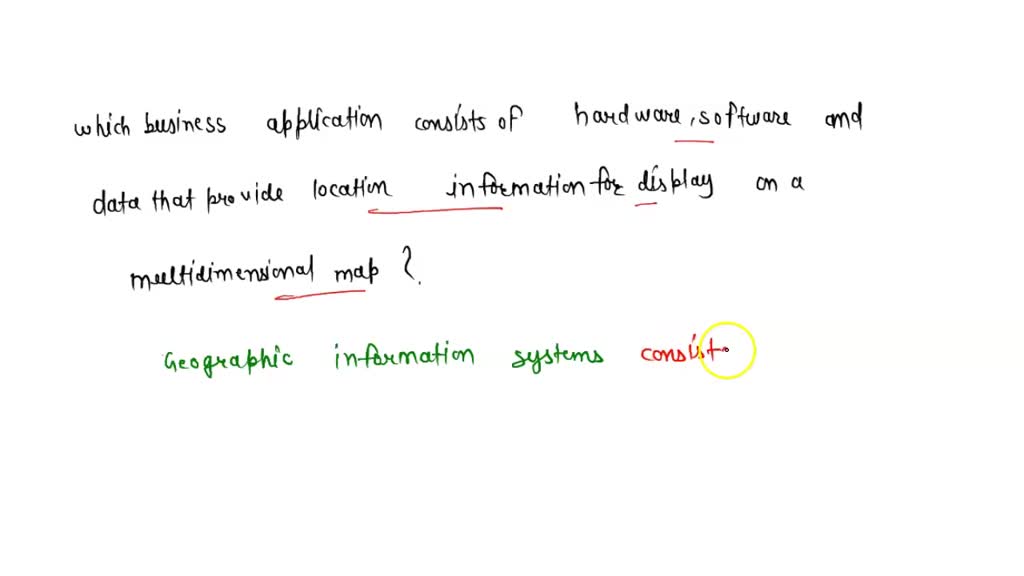 which business application consists of hardware, software and
data that provide location information for display on a
multidimensional map ?
Geographic information systems consist